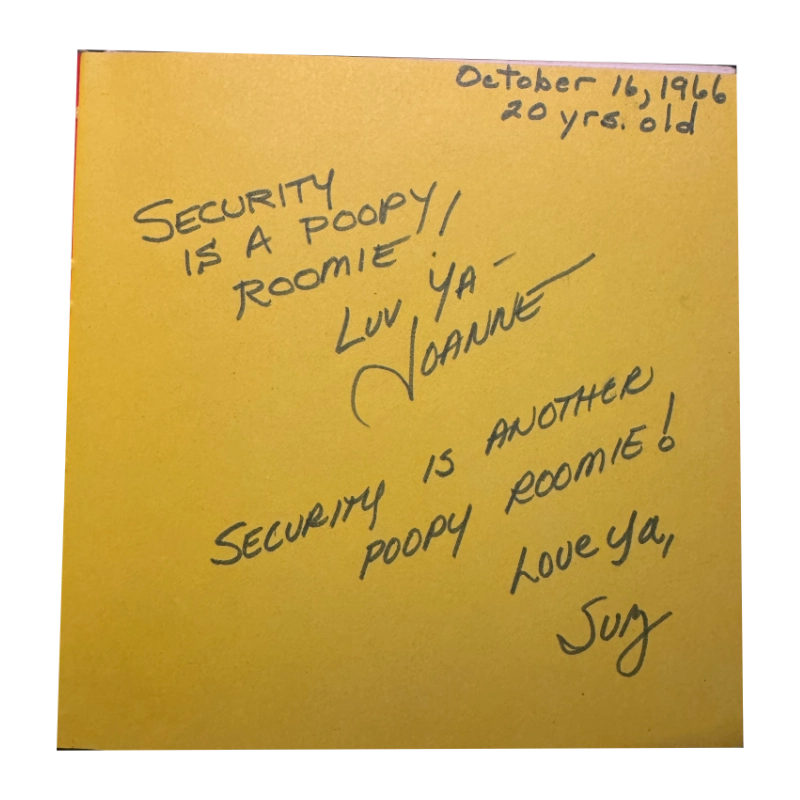 October 16, 1966
20 yrs. old
SECURITY
IS A POOPY
ROOMIE!
LUV YA -
JOANNE
SECURITY IS ANOTHER
POOPY ROOMIE!
Love ya,